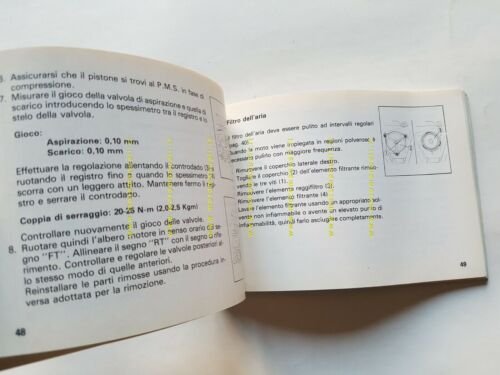 6. Assicurarsi che il pistone si trovi al P.M.S. in fase di
compressione.
7. Misurare il gioco della valvola di aspirazione e quella di
scarico introducendo lo spessimetro tra il registro e lo
stelo della valvola.
Gioco:
Aspirazione: 0,10 mm
Scarico: 0,10 mm
Effettuare la regolazione allentando il controdado (3) e
ruotando il registro fino a quando lo spessimetro
scorra con un leggero attrito. Mantenere fermo il regi-
stro e serrare il controdado.
Coppia di serraggio: 20-25 N·m (2,0-2,5 Kgm)
Controllare nuovamente il gioco delle valvole.
8. Ruotare quindi l'albero motore in senso orario di
gno "FT". Allineare il segno "RT" con il segno di rife-
rimento. Controllare e regolare le valvole posteriori al-
lo stesso modo di quelle anteriori.
Reinstallare le parti rimosse usando la procedura in-
versa adottata per la rimozione.
48
Filtro dell'aria
Il filtro dell'aria deve essere pulito ad intervalli regolari
(pag. 40).
Quando la moto viene impiegata in regioni polverose, è
necessario pulirlo con maggiore frequenza.
Rimuovere il coperchio laterale destro.
Togliere il coperchio (2) dell'elemento filtrante rimuo-
vendo le tre viti (1).
Rimuovere l'elemento reggifiltro (3).
Rimuovere l'elemento filtrante (4).
Lavare l'elemento filtrante usando un appropriato sol-
vente non infiammabile o avente un elevato punto di
infiammabilità, quindi farlo asciugare completamente.
49